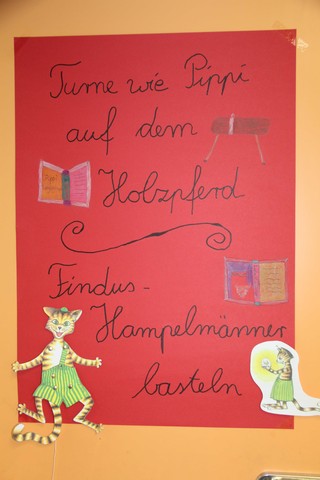 Turne wie Pippi
auf dem
Holzpferd
Findus-
Hampelmänner
basteln